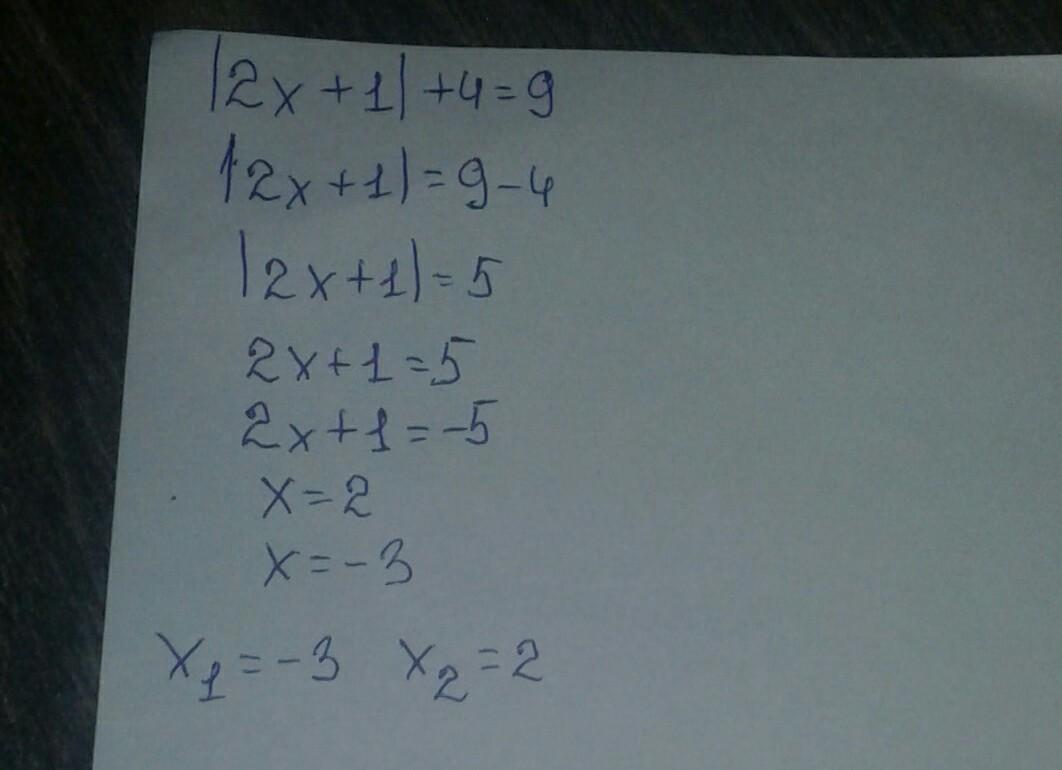 |2x+1|+4=9
|2x+1|=9-4
|2x+1|=5
2x+1=5
2x+1=-5
x=2
x=-3
x₁=-3 x₂=2